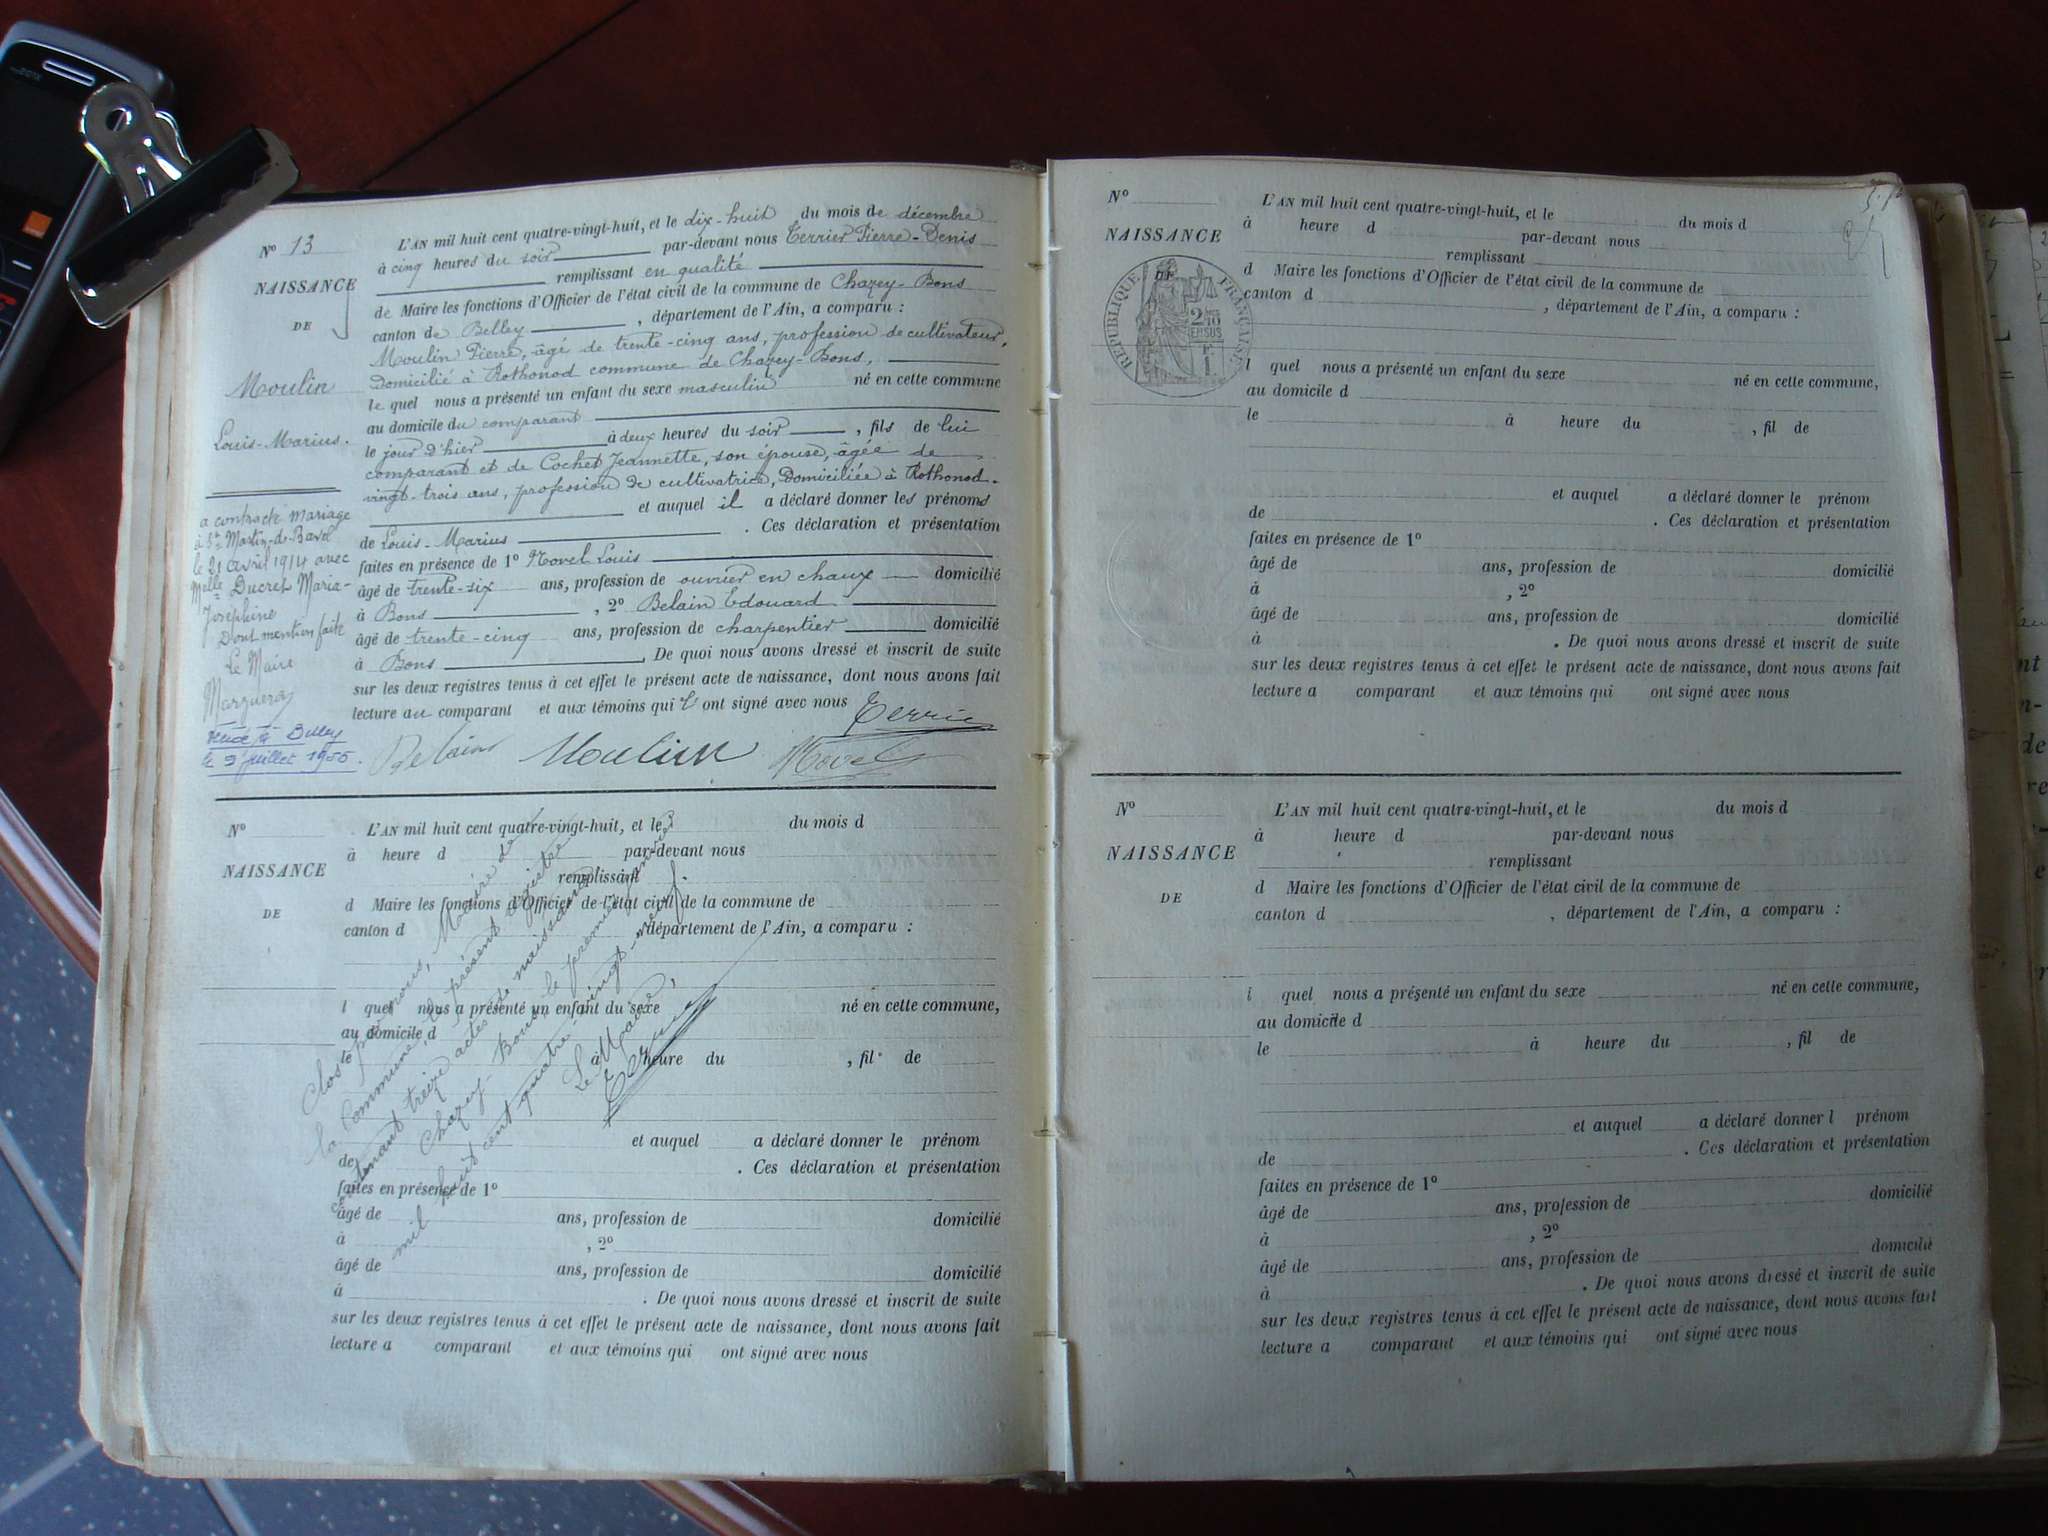 N° 13
NAISSANCE
DE
Moulin
Louis-Marius.
a contracté mariage
à St Martin-de-Bavel
le 21 avril 1914 avec
Melle Ducret Maria-
Joséphine
Dont mention faite
Le Maire
le juillet 1955.
L'AN mil huit cent quatre-vingt-huit, et le dix-huit du mois de décembre
à cinq heures du soir par-devant nous Terrier Pierre-Denis
remplissant en qualité
de Maire les fonctions d'Officier de l'état civil de la commune de Chazey-Bons
canton de Belley , département de l'Ain, a comparu :
Moulin Pierre, âgé de trente-cinq ans, profession de cultivateur,
domicilié à Rothonod commune de Chazey-Bons,
le quel nous a présenté un enfant du sexe masculin né en cette commune
au domicile du comparant
le jour d'hier à deux heures du soir , fils de lui
comparant et de Cochet Jeannette, son épouse, âgée de
vingt-trois ans, profession de cultivatrice, domiciliée à Rothonod.
et auquel il a déclaré donner les prénoms
de Louis-Marius . Ces déclaration et présentation
faites en présence de 1° Novel Louis
âgé de trente-six ans, profession de ouvrier en chaux domicilié
à Bons , 2° Belain Edouard
âgé de trente-cinq ans, profession de charpentier domicilié
à Bons . De quoi nous avons dressé et inscrit de suite
sur les deux registres tenus à cet effet le présent acte de naissance, dont nous avons fait
lecture au comparant et aux témoins qui ont signé avec nous
Terrier
Belain Moulin Novel
N°
NAISSANCE
DE
L'AN mil huit cent quatre-vingt-huit, et le du mois d
à heure d par-devant nous
remplissant
d Maire les fonctions d'Officier de l'état civil de la commune de
canton d , département de l'Ain, a comparu :
l quel nous a présenté un enfant du sexe né en cette commune,
au domicile d
le à heure du , fil de
et auquel a déclaré donner le prénom
de . Ces déclaration et présentation
faites en présence de 1°
âgé de ans, profession de domicilié
à , 2°
âgé de ans, profession de domicilié
à . De quoi nous avons dressé et inscrit de suite
sur les deux registres tenus à cet effet le présent acte de naissance, dont nous avons fait
lecture a comparant et aux témoins qui ont signé avec nous
Clos par nous, Maire de
la Commune, le présent registre
contenant treize actes de naissance
Chazey-Bons, le premier janvier
mil huit cent quatre-vingt-neuf.
Le Maire,
Terrier
N°
NAISSANCE
RÉPUBLIQUE FRANÇAISE
2/10
EN SUS
L'AN mil huit cent quatre-vingt-huit, et le du mois d
à heure d par-devant nous
remplissant
d Maire les fonctions d'Officier de l'état civil de la commune de
canton d , département de l'Ain, a comparu :
l quel nous a présenté un enfant du sexe né en cette commune,
au domicile d
le à heure du , fil de
et auquel a déclaré donner le prénom
de . Ces déclaration et présentation
faites en présence de 1°
âgé de ans, profession de domicilié
à , 2°
âgé de ans, profession de domicilié
à . De quoi nous avons dressé et inscrit de suite
sur les deux registres tenus à cet effet le présent acte de naissance, dont nous avons fait
lecture a comparant et aux témoins qui ont signé avec nous
N°
NAISSANCE
DE
L'AN mil huit cent quatre-vingt-huit, et le du mois d
à heure d par-devant nous
remplissant
d Maire les fonctions d'Officier de l'état civil de la commune de
canton d , département de l'Ain, a comparu :
l quel nous a présenté un enfant du sexe né en cette commune,
au domicile d
le à heure du , fil de
et auquel a déclaré donner l prénom
de . Ces déclaration et présentation
faites en présence de 1°
âgé de ans, profession de domicilié
à , 2°
âgé de ans, profession de domicilié
à . De quoi nous avons dressé et inscrit de suite
sur les deux registres tenus à cet effet le présent acte de naissance, dont nous avons fait
lecture a comparant et aux témoins qui ont signé avec nous